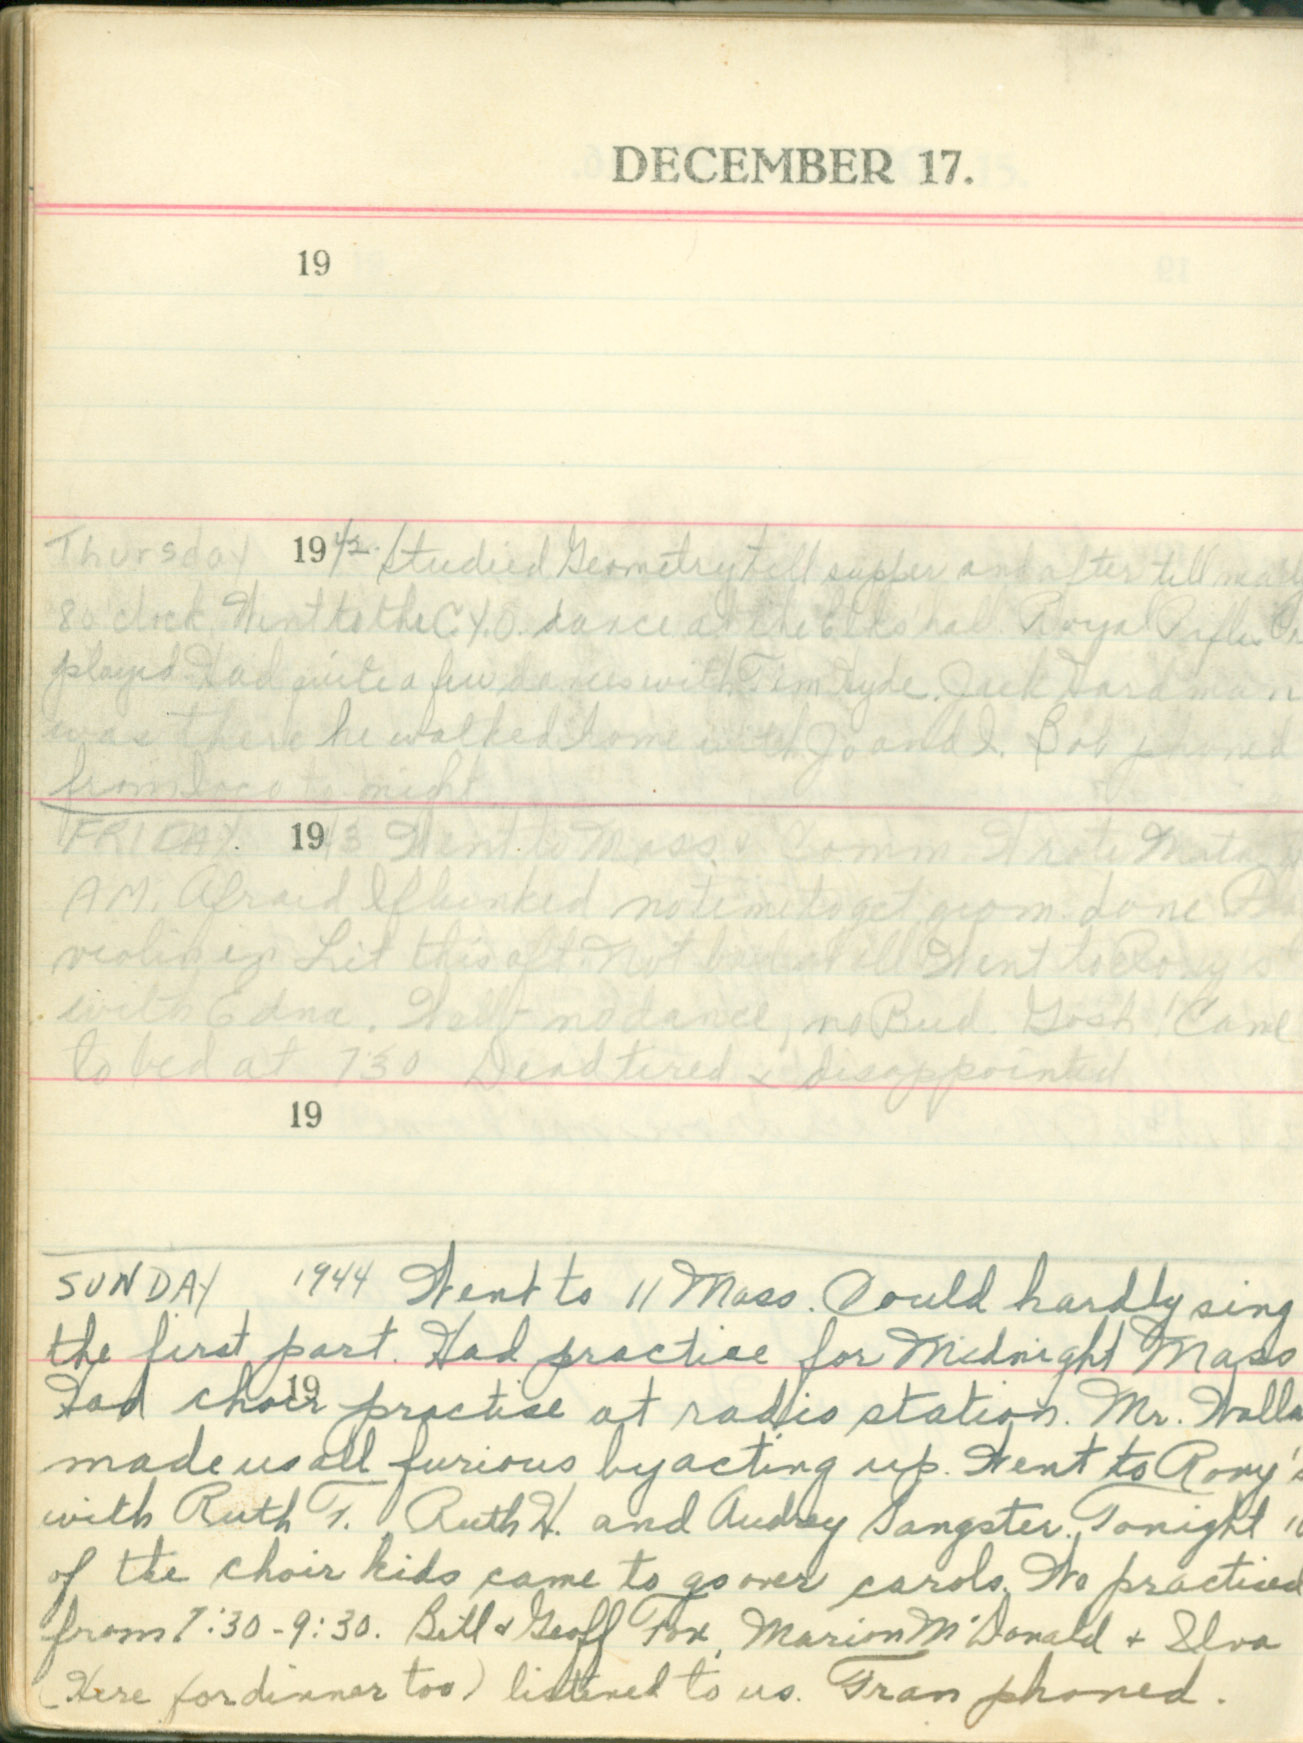 DECEMBER 17.
19
Thursday 1942. Studied Geometry till supper and after till nearly
8 o'clock. Went to the C.Y.O. dance at the Elks hall. Royal Rifles
played. Had quite a few dances with Tim Hyde. Jack Hardman
was there he walked home with Jo and I. Bob phoned
from to night.
FRIDAY. 1943 Went to Mass & Comm. Wrote
AM. Afraid I flunked no time to get geom. done
violin in Lit this aft. Not bad at all Went to Roxy's
with Edna. Well - no dance, no Bud. Gosh! Came
to bed at 7:30 Dead tired & disappointed
19
SUNDAY 1944 Went to 11 Mass. Could hardly sing
the first part. Had practice for Midnight Mass
19
Had choir practise at radio station. Mr.
made us all furious by acting up. Went to Roxy's
with Ruth T. Ruth H. and Audrey Sangster. Tonight
of the choir kids came to go over carols. We practised
from 7:30-9:30. Bill & Geoff Fox, Marion McDonald + Elva
(Here for dinner too) listened to us. Fran phoned.